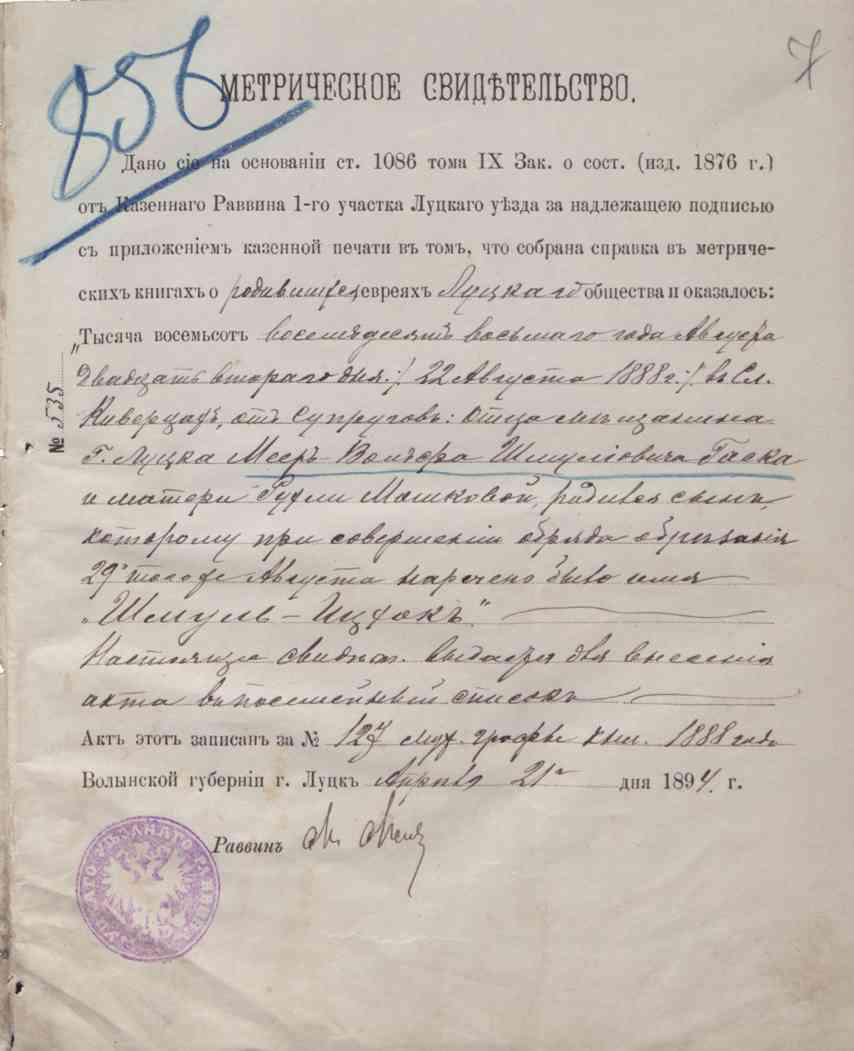 856
7
МЕТРИЧЕСКОЕ СВИДѢТЕЛЬСТВО.
Дано сіе на основаніи ст. 1086 тома IX Зак. о сост. (изд. 1876 г.)
отъ Казеннаго Раввина 1-го участка Луцкаго уѣзда за надлежащею подписью
съ приложеніемъ казенной печати въ томъ, что собрана справка въ метриче-
скихъ книгахъ о родившихся евреяхъ Луцкаго общества и оказалось:
„Тысяча восемьсотъ восемьдесятъ восьмаго года Августа
двадцать втораго дня :/ 22 Августа 1888 г :/ въ Сл.
Киверцахъ, отъ Супруговъ: Отца мѣщанина
Г. Луцка Меер-Вольфа Шмулiовича Гаска
и матери Рухли Мошковой, родился сынъ,
которому при совершеніи обряда обрѣзанія
29 того же Августа наречено было имя
„Шмуль – Ицхокъ".
Настоящее свидѣт. выдается для внесенія
акта въ посемейный списокъ
№ 535
Актъ этотъ записанъ за № 127 муж. графы кн. 1888 года
Волынской губерніи г. Луцкъ Апрѣля 21 дня 1894 г.
Раввинъ